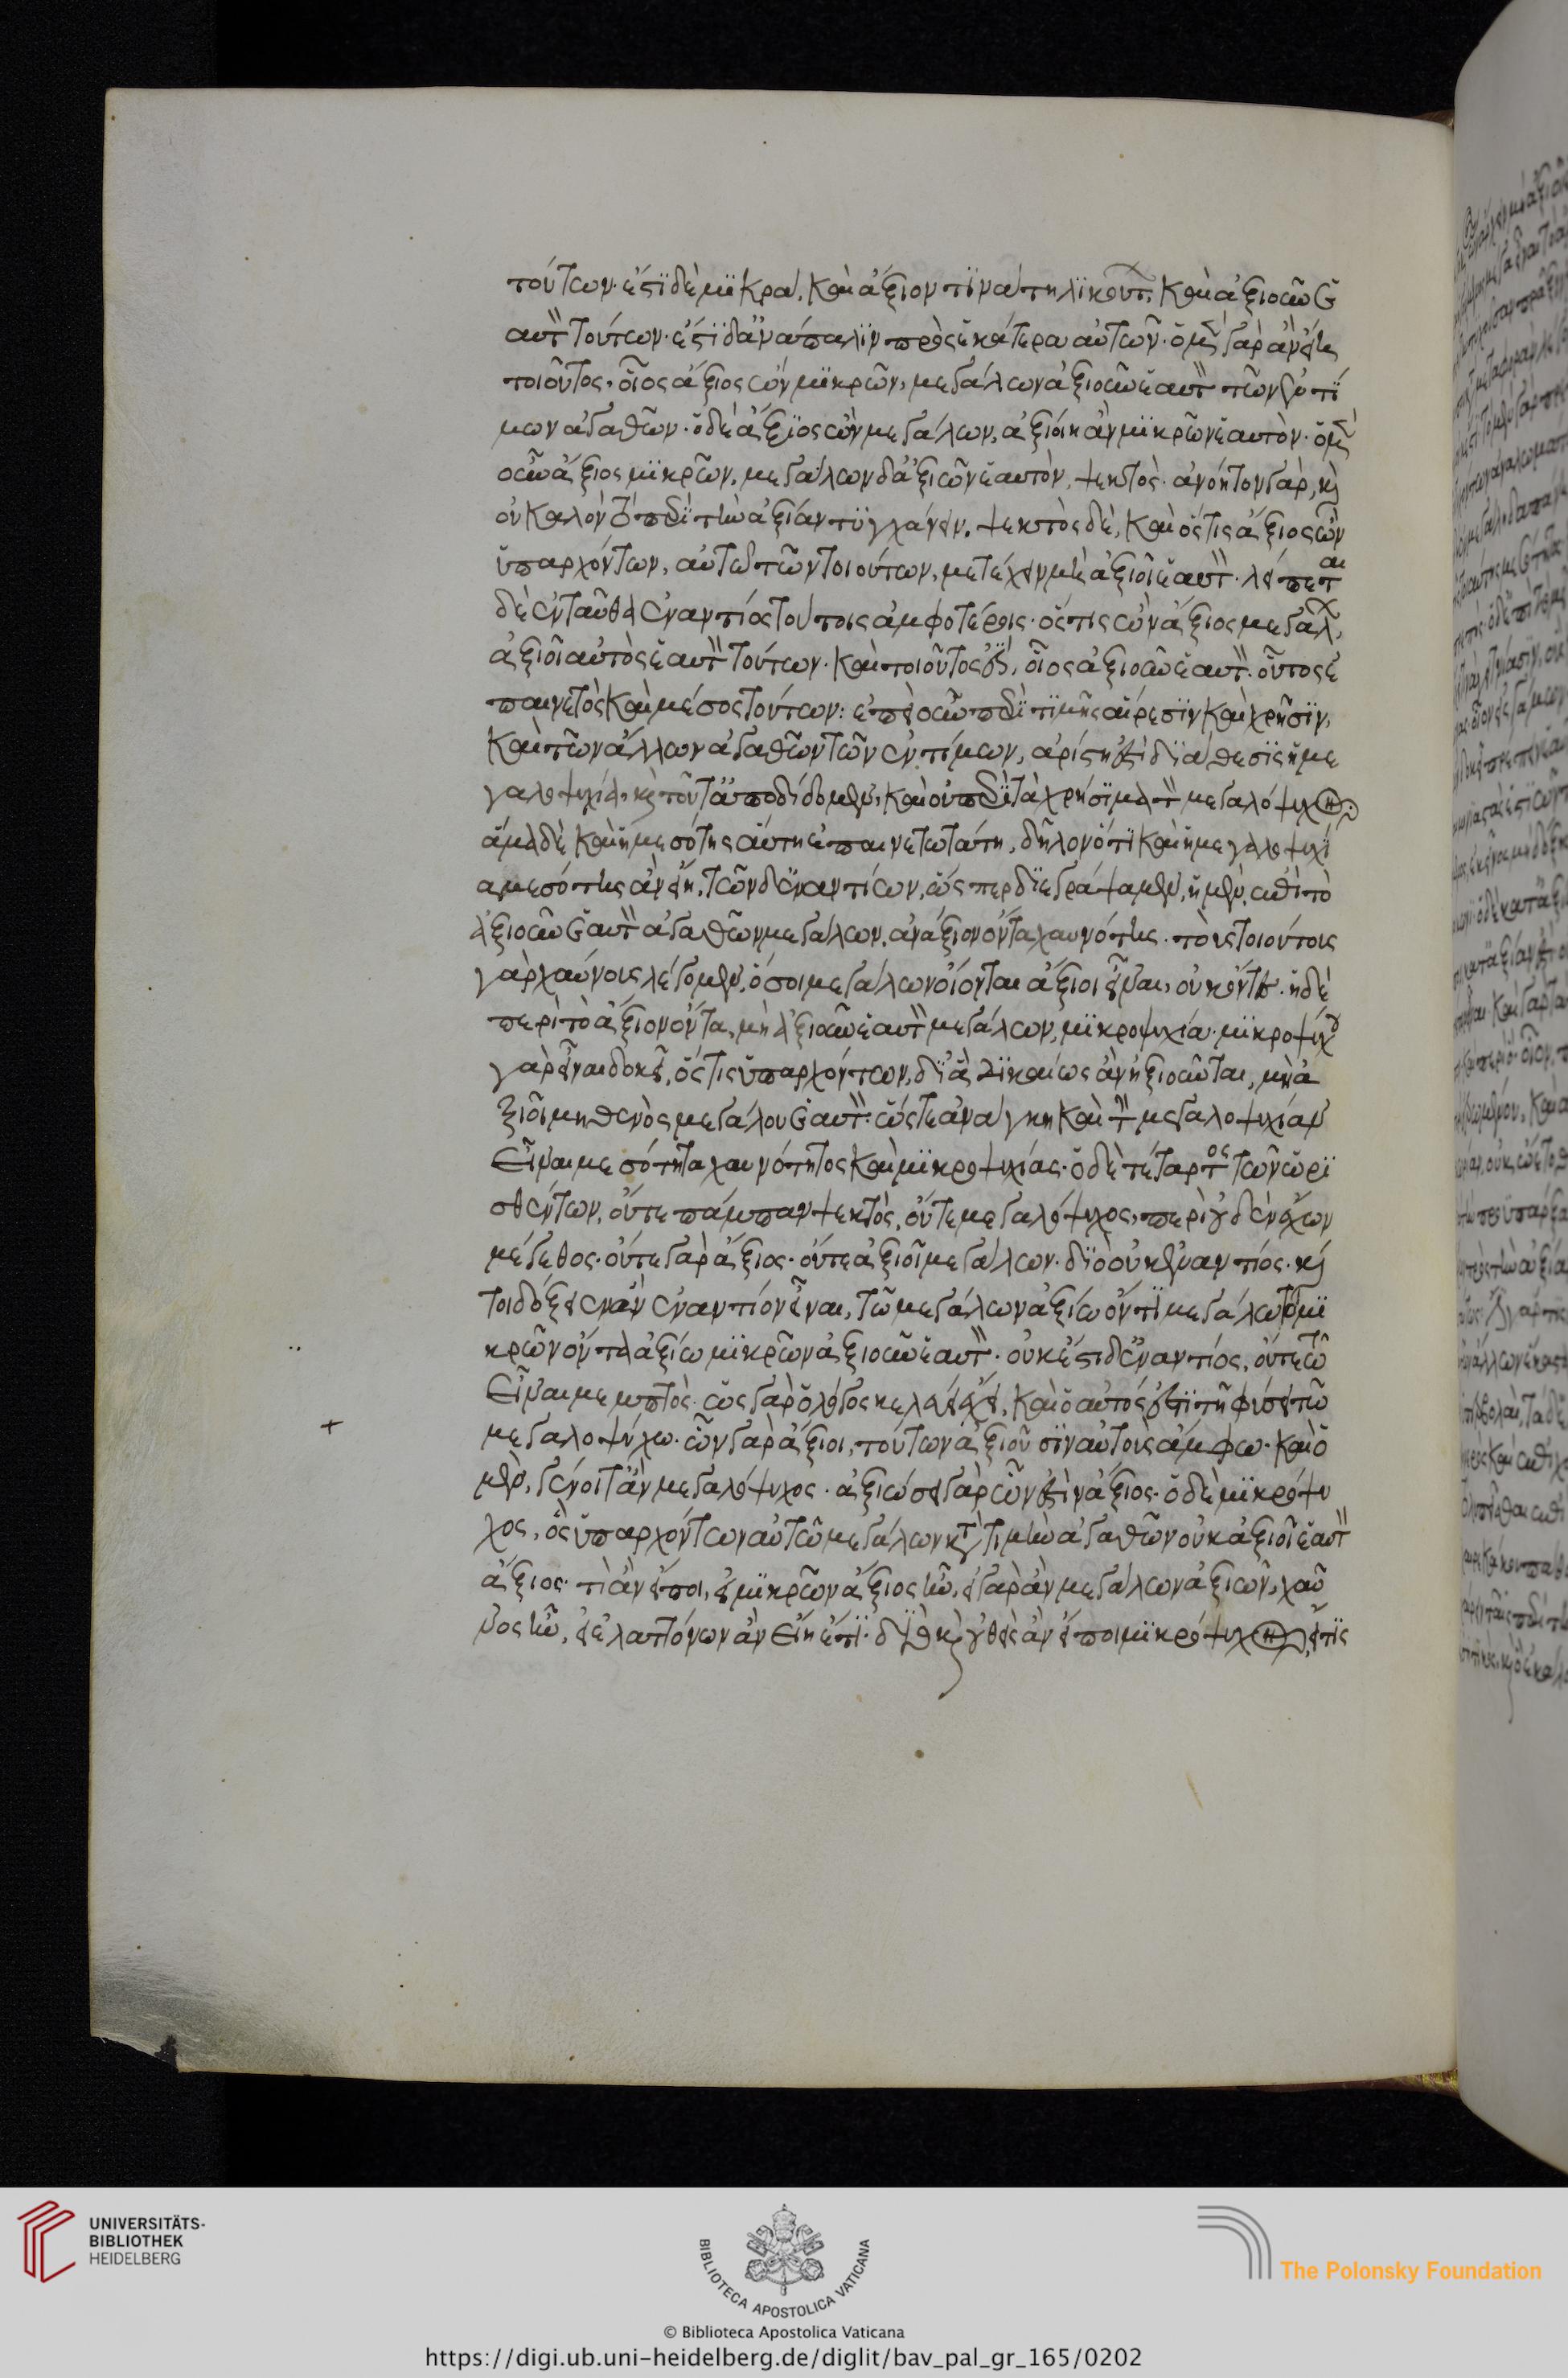 τούτων· ἔστι δὲ μικρὰ, καὶ ἄξιον τινὰ τηλικούτων, καὶ ἀξιοῦν ἑ
αυτὸν τούτων· ἔστι δ' ἀνάπαλιν πρὸς ἑκάτερα αὐτῶν· ὁ μὲν γὰρ ἂν εἴη
τοιοῦτος, οἷος ἄξιος ὢν μικρῶν, μεγάλων ἀξιοῦν ἑαυτὸν τῶν ἐντί
μων ἀγαθῶν· ὁ δὲ ἄξιος ὢν μεγάλων, ἀξιοίη ἂν μικρῶν ἑαυτὸν· ὁ μὲν
οὖν ἄξιος μικρῶν, μεγάλων δ' ἀξιῶν ἑαυτὸν, ψεκτὸς· ἀνόητον γὰρ, καὶ
οὐ καλὸν τὸ παρὰ τὴν ἀξίαν τυγχάνειν. ψεκτὸς δὲ, καὶ ὅστις ἄξιος ὢν
ὑπαρχόντων, αὐτῷ τῶν τοιούτων, μετέχειν μὴ ἀξιοῖ ἑαυτὸν· λείπεται
δὲ ἐνταῦθα ἐναντίος τούτοις ἀμφοτέροις· ὅστις ὢν ἄξιος μεγάλων,
ἀξιοῖ αὐτὸς ἑαυτὸν τούτων· καὶ τοιοῦτός ἐστι, οἷος ἀξιοῦν ἑαυτὸν· οὗτος ἐ
παινετὸς καὶ μέσος τούτων: ἐπεὶ οὖν περὶ τιμῆς αἵρεσιν καὶ χρῆσιν,
καὶ τῶν ἄλλων ἀγαθῶν τῶν ἐντίμων, ἀρίστη ἐστὶ διάθεσις ἡ με
γαλοψυχία, καὶ τοῦτ' ἀποδίδομεν, καὶ οὐ περὶ τὰ χρήσιμα τὸν μεγαλόψυχον:
ἅμα δὲ καὶ ἡ μεσότης αὕτη ἐπαινετωτάτη, δῆλον ὅτι καὶ ἡ μεγαλοψυχί
α μεσότης ἂν εἴη, τῶν δ' ἐναντίων, ὥσπερ διεγράψαμεν, ἡ μὲν, ἐπὶ τὸ
ἀξιοῦν ἑαυτὸν ἀγαθῶν μεγάλων, ἀνάξιον ὄντα χαυνότης. τοὺς τοιούτους
γὰρ χαύνους λέγομεν, ὅσοι μεγάλων οἴονται ἄξιοι εἶναι, οὐκ ὄντες. ἡ δὲ
περὶ τὸ ἄξιον ὄντα, μὴ ἀξιοῦν ἑαυτὸν μεγάλων, μικροψυχία· μικροψύχου
γὰρ εἶναι δοκεῖ, ὅστις ὑπαρχόντων, δι' ἃ δικαίως ἂν ἠξιοῦται, μὴ ἀ
ξιοῖ μηθενὸς μεγάλου ἑαυτὸν· ὥστε ἀνάγκη καὶ τὴν μεγαλοψυχίαν
εἶναι μεσότητα χαυνότητος καὶ μικροψυχίας· ὁ δὲ τέταρτος τῶν ὡρι
σθέντων, οὔτε πάμπαν ψεκτὸς, οὔτε μεγαλόψυχος, περὶ οὐδὲν ἔχων
μέγεθος· οὔτε γὰρ ἄξιος· οὔτε ἀξιοῖ μεγάλων· διὸ οὐκ ἐναντίος· καί
τοι δόξειεν ἂν ἐναντίον εἶναι, τῷ μεγάλων ἀξίῳ ὄντι μεγάλων τὸ μι
κρῶν ὄντα ἀξίῳ μικρῶν ἀξιοῦν ἑαυτὸν. οὐκ ἔστι δ' ἐναντίος, οὔτε τῷ
εἶναι μεμπτὸς· ὡς γὰρ ὁ λόγος κελεύει ἔχει, καὶ ὁ αὐτός ἐστι τῇ φύσει τῷ
μεγαλοψύχῳ· ὧν γὰρ ἄξιοι, τούτων ἀξιοῦσιν αὑτοὺς ἄμφω· καὶ ὁ
μὲν, γένοιτ' ἂν μεγαλόψυχος· ἀξιώσει γὰρ ὧν ἐστὶν ἄξιος· ὁ δὲ μικρόψυ
χος, ὃς ὑπαρχόντων αὐτῷ μεγάλων κατὰ τιμὴν ἀγαθῶν οὐκ ἀξιοῖ ἑαυτὸν
ἄξιος· τί ἂν εἴποι, εἰ μικρῶν ἄξιος ἦν, εἰ γὰρ ἂν μεγάλων ἀξιῶν, χαῦ
νος ἦν, εἰ ἐλαττόνων ἂν εἴη ἔτι· διὸ καὶ οὐθεὶς ἂν εἴποι μικρόψυχον, εἴ τις
UNIVERSITÄTS-
BIBLIOTHEK
HEIDELBERG
BIBLIOTECA APOSTOLICA VATICANA
© Biblioteca Apostolica Vaticana
The Polonsky Foundation
https://digi.ub.uni-heidelberg.de/diglit/bav_pal_gr_165/0202